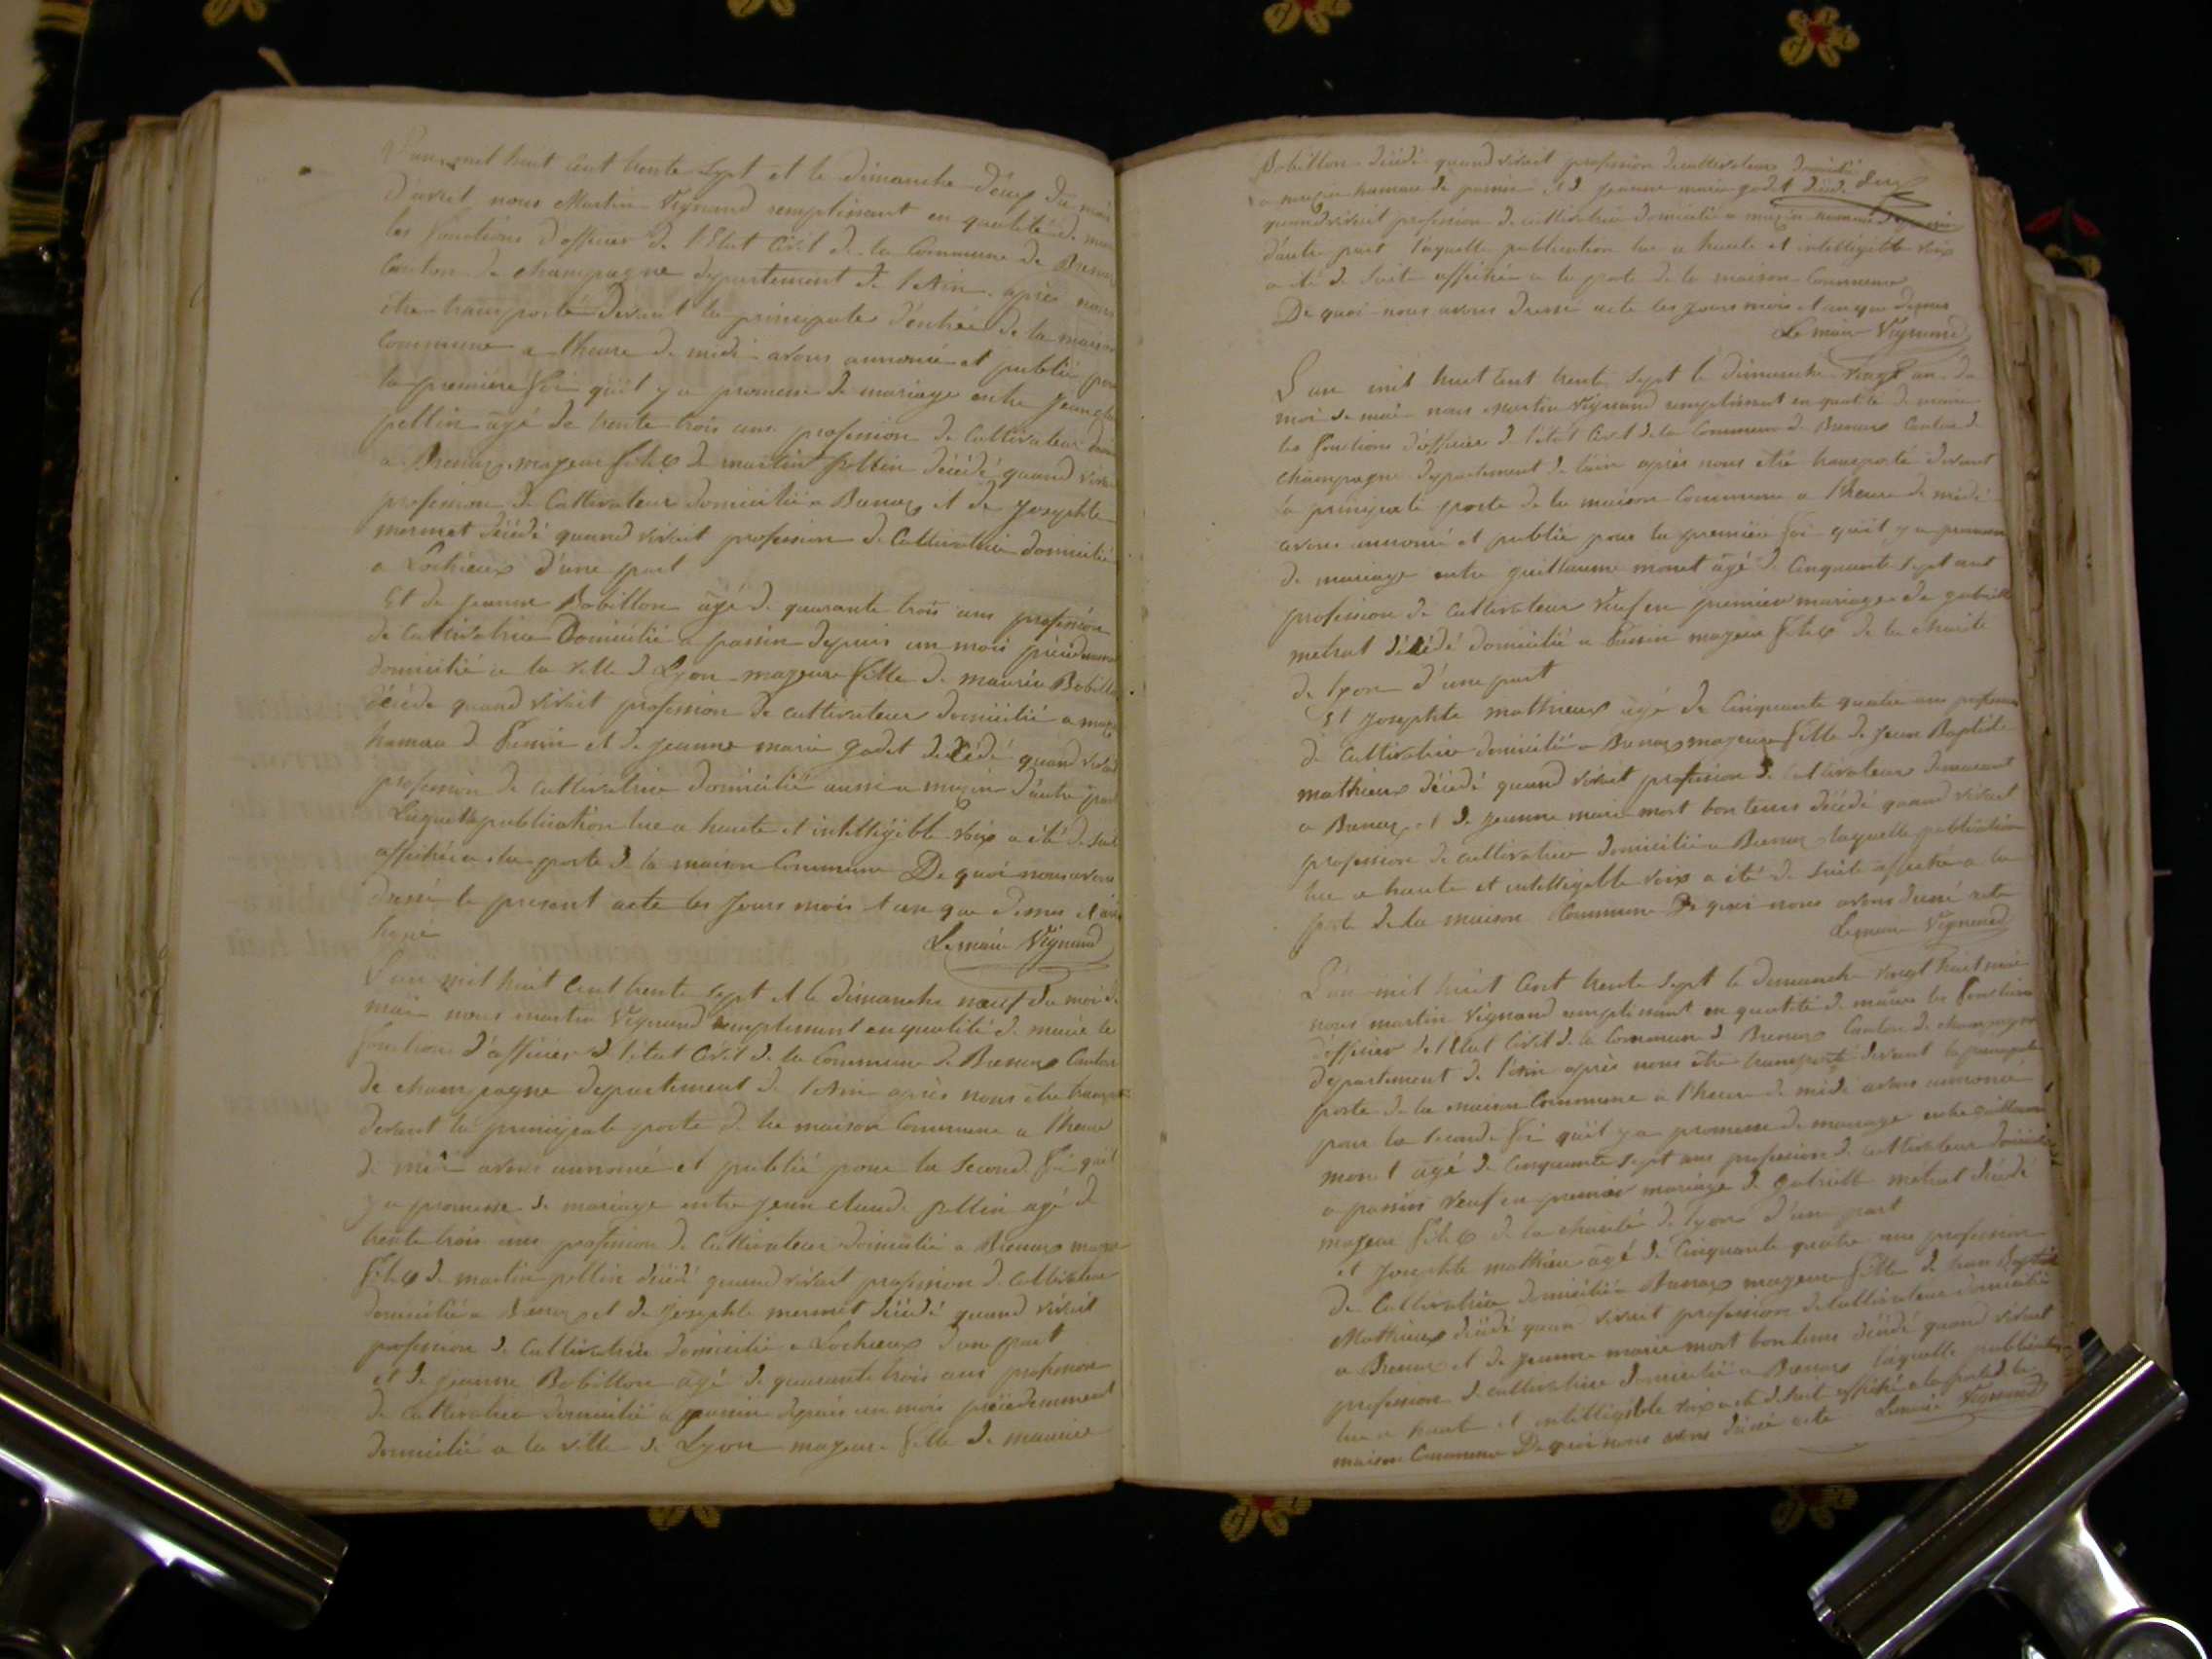 L'an mil huit Cent trente Sept et le dimanche deux du mois
davril nous Martin Vignand remplissant en qualité de maire
les fonctions d'officier de l'Etat Civil de la Commune de Brenaz
Canton de champagne departement de l'Ain après nous
être transporté devant la principale d'entrée de la maison
Commune a lheure de midi avons annoncé et publié pour
la premiere foi qu'il y a promesse de mariage entre Jean
pollin agé de trente trois ans profession de Cultivateur
a Brenaz majeur fils de martin pollin décédé quand vivait
profession de Cultivateur domicilié a Brenaz et de josephte
mermet décédé quand vivait profession de Cultivatrice domicilié
a Lochieux d'une part
Et de jeanne Bobillon agé de quarante trois ans profession
de Cultivatrice Domicilié a passin depuis un mois précédemment
domicilié a la ville de Lyon majeure fille de maurice Bobillon
décédé quand vivait profession de cultivateur domicilié a
hameau de et de jeanne marie godet décédé quand vivait
profession de Cultivatrice domicilié aussi a d'autre part
Laquelle publication lue a haute et intelligible voix a été de suite
affichée a la porte de la maison Commune De quoi nous avons
dressé le present acte les jours mois et an que dessus et avons
signé Le maire Vignand
L'an mil huit Cent trente sept et le dimanche neuf du moi de
mai nous martin Vignand remplissant en qualité de maire les
fonctions d'officier de l'état Civil de la Commune de Brenaz Canton
de champagne departement de l'Ain après nous être transporté
devant la principale porte de la maison Commune a l'heure
de midi avons annoncé et publié pour la second foi qu'il
y a promesse de mariage entre jean claude pollin agé de
trente trois ans profession de Cultivateur domicilié a Brenaz majeur
fils de martin pollin décédé quand vivait profession de Cultivateur
domicilié a Brenaz et de josephte mermet décédé quand vivait
profession de Cultivatrice domicilié a Lochieux d'une part
et de jeanne Bobillon agé de quarante trois ans profession
de Cultivatrice domicilié a passin depuis un mois précédemment
domicilié a la ville de Lyon majeure fille de maurice
Bobillon décédé quand vivait profession de cultivateur domicilié
a hameau de et de jeanne marie godet décédé
quand vivait profession de cultivatrice domicilié a hameau de
d'autre part laquelle publication lue a haute et intelligible voix
a été de suite affichée a la porte de la maison Commune
De quoi nous avons dressé acte les jours mois et an que dessus
Le maire Vignand
L'an mil huit Cent trente sept le dimanche vingt un du
moi de mai nous martin Vignand remplissant en qualité de maire
les fonctions d'officier de l'état Civil de la Commune de Brenaz Canton de
champagne departement de l'ain après nous être transporté devant
la principale porte de la maison Commune a l'heure de midi
avons annoncé et publié pour la premiere foi qu'il y a promesse
de mariage entre guillaume monet agé de Cinquante sept ans
profession de cultivateur veuf en premier mariage de gabrielle
metrat décédé domicilié a Passin majeur fils de la charité
de lyon d'une part
Et josephte mathieux agé de Cinquante quatre ans profession
de Cultivatrice domicilié a Brenaz majeure fille de Jean Baptiste
mathieux décédé quand vivait profession de Cultivateur demeurant
a Brenaz et de jeanne marie mort bon tems décédé quand vivait
profession de cultivatrice domicilié a Brenaz laquelle publication
lue a haute et intelligible voix a été de suite affichée a la
porte de la maison Commune De quoi nous avons dressé acte
Le maire Vignand
L'an mil huit Cent trente sept le dimanche vingt huit mai
nous martin Vignand remplissant en qualité de maire les fonctions
d'officier de l'Etat Civil de la Commune de Brenaz Canton de champagne
departement de l'Ain après nous être transporté devant la principale
porte de la maison Commune a l'heure de midi avons annoncé
pour la seconde foi qu'il y a promesse de mariage entre guillaume
monet agé de Cinquante sept ans profession de cultivateur domicilié
a passin veuf en premier mariage de Gabrielle metrat décédé
majeur fils de la charité de lyon d'une part
et josephte mathieu agé de Cinquante quatre ans profession
de Cultivatrice domicilié a Brenaz majeure fille de Jean Baptiste
Mathieux décédé quand vivait profession de cultivateur domicilié
a Brenaz et de jeanne marie mort bon tems décédé quand vivait
profession de cultivatrice domicilié a Brenaz laquelle publication
lue a haute et intelligible voix a été de suite affiché a la porte de la
maison Commune De quoi nous avons dressé acte Le maire Vignand